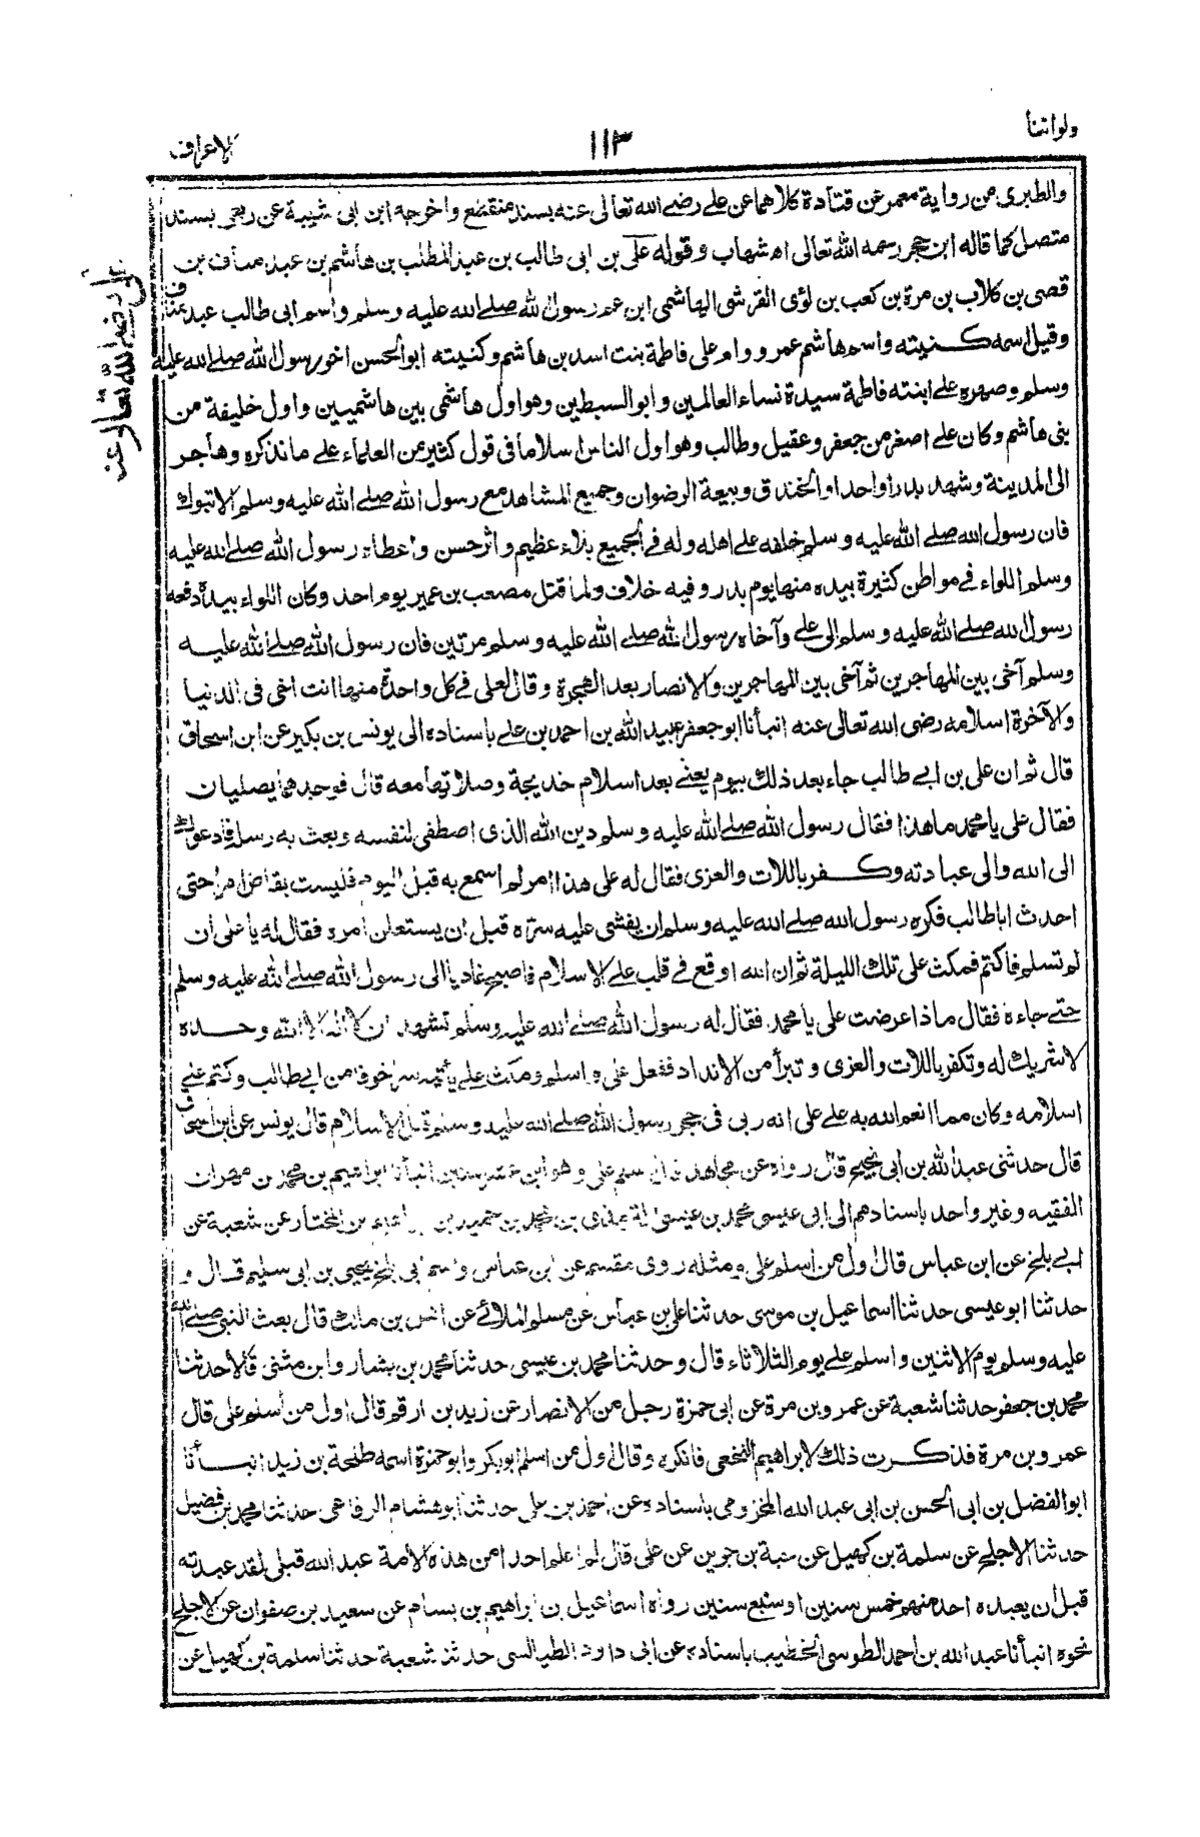 ولواننا
١١٣
الاعراف
والطبرى من رواية معمر عن قتادة كلاهما عن على رضى الله تعالى عنه بسند منقطع واخرجه ابن ابى شيبة عن ربعى بسند
متصل كما قاله ابن حجر رحمه الله تعالى اه شهاب وقوله على بن ابى طالب بن عبد المطلب بن هاشم بن عبد مناف بن
قصى بن كلاب بن مرة بن كعب بن لؤى القرشى الهاشمى ابن عم رسول الله صلى الله عليه وسلم واسم ابى طالب عبد مناف
وقيل اسمه كنيته واسم هاشم عمرو وام على فاطمة بنت اسد بن هاشم وكنيته ابو الحسن اخو رسول الله صلى الله عليه
وسلم وصهره على ابنته فاطمة سيدة نساء العالمين وابو السبطين وهو اول هاشمى بين هاشميين واول خليفة من
بنى هاشم وكان على اصغر من جعفر وعقيل وطالب وهو اول الناس اسلاما فى قول كثير من العلماء على ما نذكره وهاجر
الى المدينة وشهد بدرا واحدا والخندق وبيعة الرضوان وجميع المشاهد مع رسول الله صلى الله عليه وسلم الا تبوك
فان رسول الله صلى الله عليه وسلم خلفه على اهله وله فى الجميع بلاء عظيم واثر حسن واعطاه رسول الله صلى الله عليه
وسلم اللواء فى مواطن كثيرة بيده منها يوم بدر وفيه خلاف ولما قتل مصعب بن عمير يوم احد وكان اللواء بيده دفعه
رسول الله صلى الله عليه وسلم الى على وآخاه رسول الله صلى الله عليه وسلم مرتين فان رسول الله صلى الله عليه
وسلم آخى بين المهاجرين ثم آخى بين المهاجرين والانصار بعد الهجرة وقال لعلى فى كل واحدة منهما انت اخى فى الدنيا
والآخرة اسلامه رضى الله تعالى عنه انبأنا ابو جعفر عبيد الله بن احمد بن على باسناده الى يونس بن بكير عن ابن اسحاق
قال ثم ان على بن ابى طالب جاء بعد ذلك بيوم يعنى بعد اسلام خديجة وصلاتها معه قال فوجدهما يصليان
فقال على يا محمد ما هذا فقال رسول الله صلى الله عليه وسلم دين الله الذى اصطفى لنفسه وبعث به رسله فادعوك
الى الله والى عبادته وكفر باللات والعزى فقال له على هذا امر لم اسمع به قبل اليوم فليست بقاض امرا حتى
احدث ابا طالب فكره رسول الله صلى الله عليه وسلم ان يفشى عليه سره قبل ان يستعلن امره فقال له يا على ان
لم تسلم فاكتم فمكث على تلك الليلة ثم ان الله اوقع فى قلب على الاسلام فاصبح غاديا الى رسول الله صلى الله عليه وسلم
حتى جاءه فقال ماذا عرضت على يا محمد فقال له رسول الله صلى الله عليه وسلم تشهد ان لا اله الا الله وحده
لا شريك له وتكفر باللات والعزى وتبرأ من الانداد ففعل على واسلم ومكث على يأتيه سرا خوفا من ابى طالب وكتم على
اسلامه وكان مما انعم الله به على على انه ربى فى حجر رسول الله صلى الله عليه وسلم قبل الاسلام قال يونس عن ابن اسحاق
قال حدثنى عبد الله بن ابى نجيح قال رواه عن مجاهد قال اسلم على وهو ابن عشر سنين انبأنا ابراهيم بن محمد بن مهران
الفقيه وغير واحد باسنادهم الى ابى عيسى محمد بن عيسى الترمذى بن محمد بن حميد بن ابراهيم بن المختار عن شعبة عن
ابى بلج عن ابن عباس قال اول من اسلم على ومثله روى مقسم عن ابن عباس واسم ابى بلج يحيى بن ابى سليم قال و
حدثنا ابو عيسى حدثنا اسماعيل بن موسى حدثنا على بن عباس عن مسلم الملائى عن انس بن مالك قال بعث النبى صلى الله
عليه وسلم يوم الاثنين واسلم على يوم الثلاثاء قال وحدثنا محمد بن عيسى حدثنا محمد بن بشار وابن مثنى قالا حدثنا
محمد بن جعفر حدثنا شعبة عن عمرو بن مرة عن ابى حمزة رجل من الانصار عن زيد بن ارقم قال اول من اسلم على قال
عمرو بن مرة فذكرت ذلك لابراهيم النخعى فانكره وقال اول من اسلم ابو بكر وابو حمزة اسمه طلحة بن زيد انبأنا
ابو الفضل بن ابى الحسن بن ابى عبد الله المخزومى باسناده عن احمد بن على حدثنا ابو هشام الرفاعى حدثنا محمد بن فضيل
حدثنا الاجلح عن سلمة بن كهيل عن حبة بن جوين عن على قال لم اعلم احدا من هذه الامة عبد الله قبلى لقد عبدته
قبل ان يعبده احد منهم خمس سنين او سبع سنين رواه اسماعيل بن ابراهيم بن بسام عن سعيد بن صفوان عن الاجلح
نحوه انبأنا عبد الله بن احمد الطوسى الخطيب باسناده عن ابى داود الطيالسى حدثنا شعبة حدثنا سلمة بن كهيل عن
على رضى الله تعالى عنه